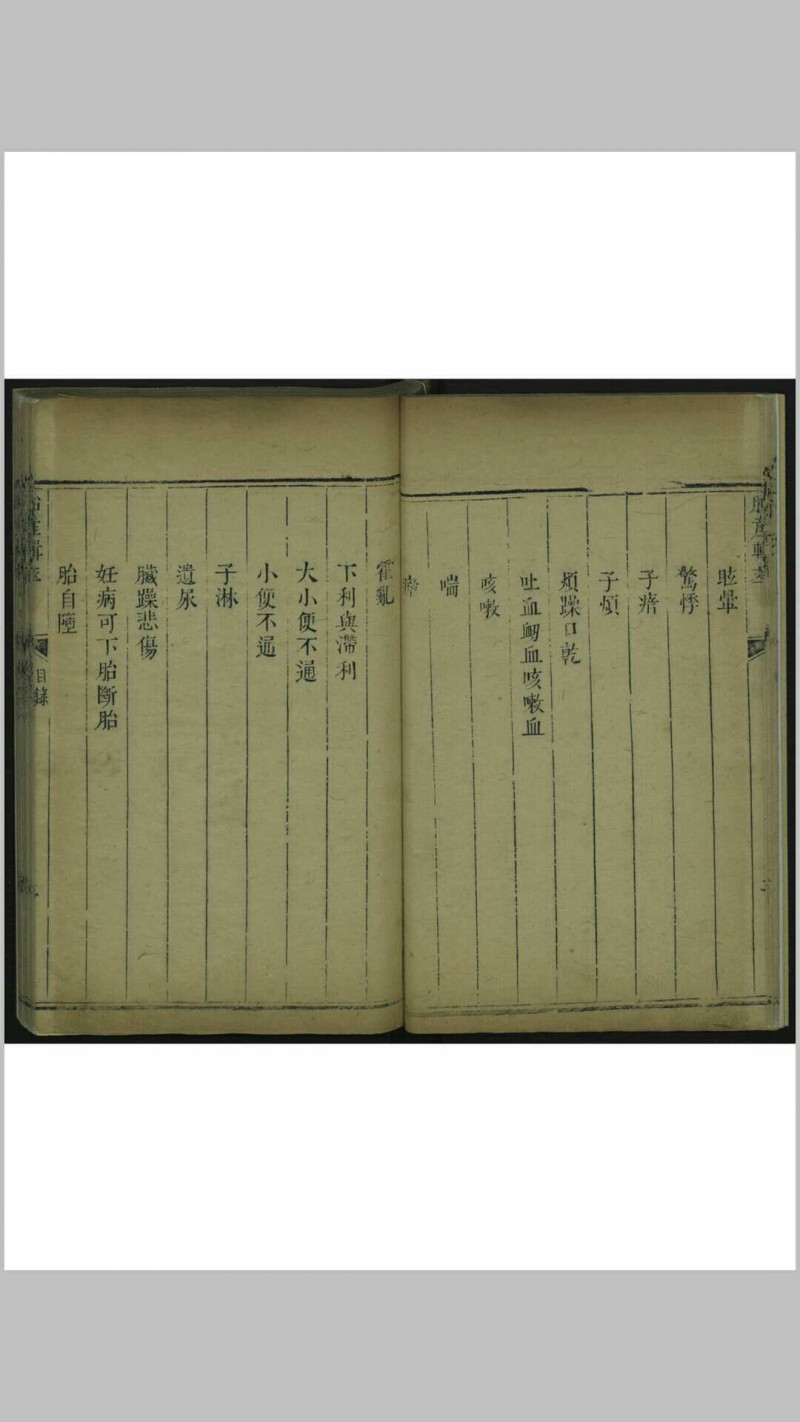 眩暈
驚悸
子瘖
子煩
煩躁口乾
吐血衂血咳嗽血
咳嗽
喘
霍亂
下利與滯利
大小便不通
小便不通
子淋
遺尿
臟躁悲傷
妊病可下胎斷胎
胎自墮
目錄